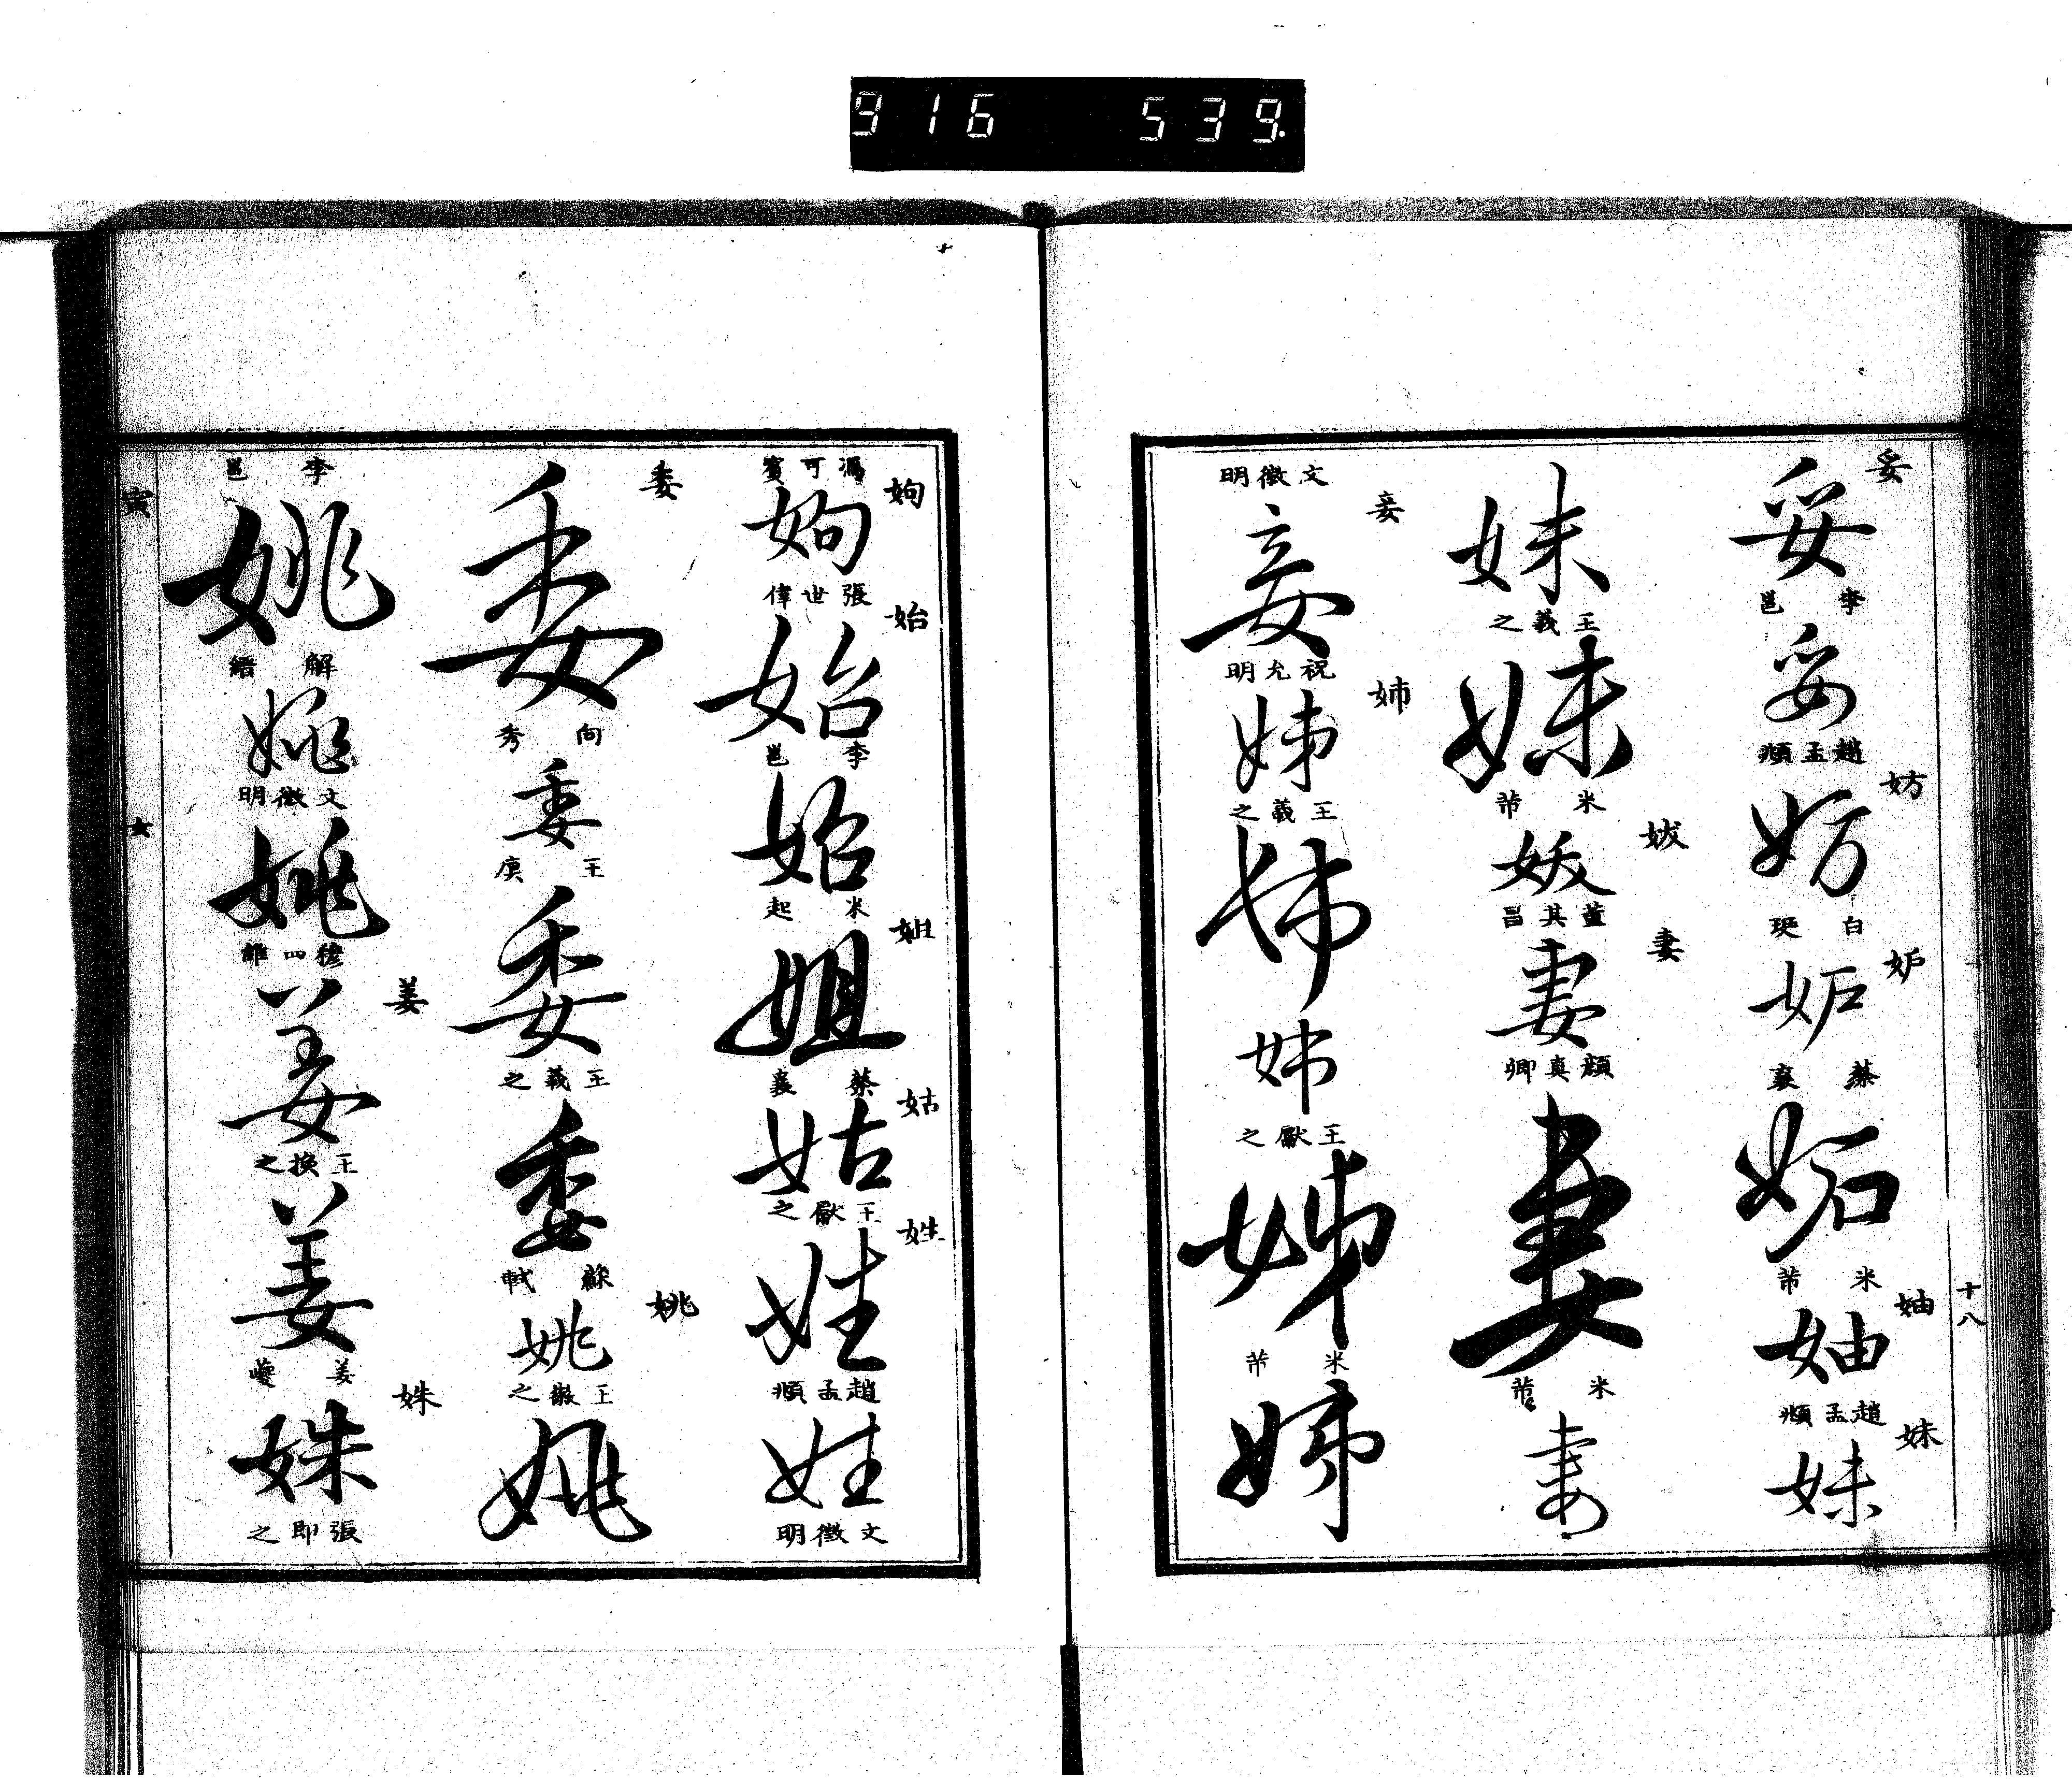 916 539.
十八
妥
妥
李邕
妥
趙孟頫
妨
妨
白珽
妒
妒
蔡襄
妬
米芾
妯
妯
趙孟頫
妹
妹
妹
王羲之
妹
米芾
妭
妭
董其昌
妻
妻
顔真卿
妻
米芾
妻
文徵明
妾
妾
祝允明
姉
姊
王羲之
姉
姉
王獻之
姊
米芾
姉
馮可賓
姁
姁
張世偉
始
始
李邕
始
米起
姐
姐
蔡襄
姑
姑
王獻之
姓
姓
趙孟頫
姓
文徵明
委
委
向秀
委
王廙
委
王羲之
委
蘇軾
姚
姚
王徽之
姚
李邕
姚
解縉
姚
文徵明
姚
姜
姜
王渙之
姜
姜夔
姝
姝
張即之
寅